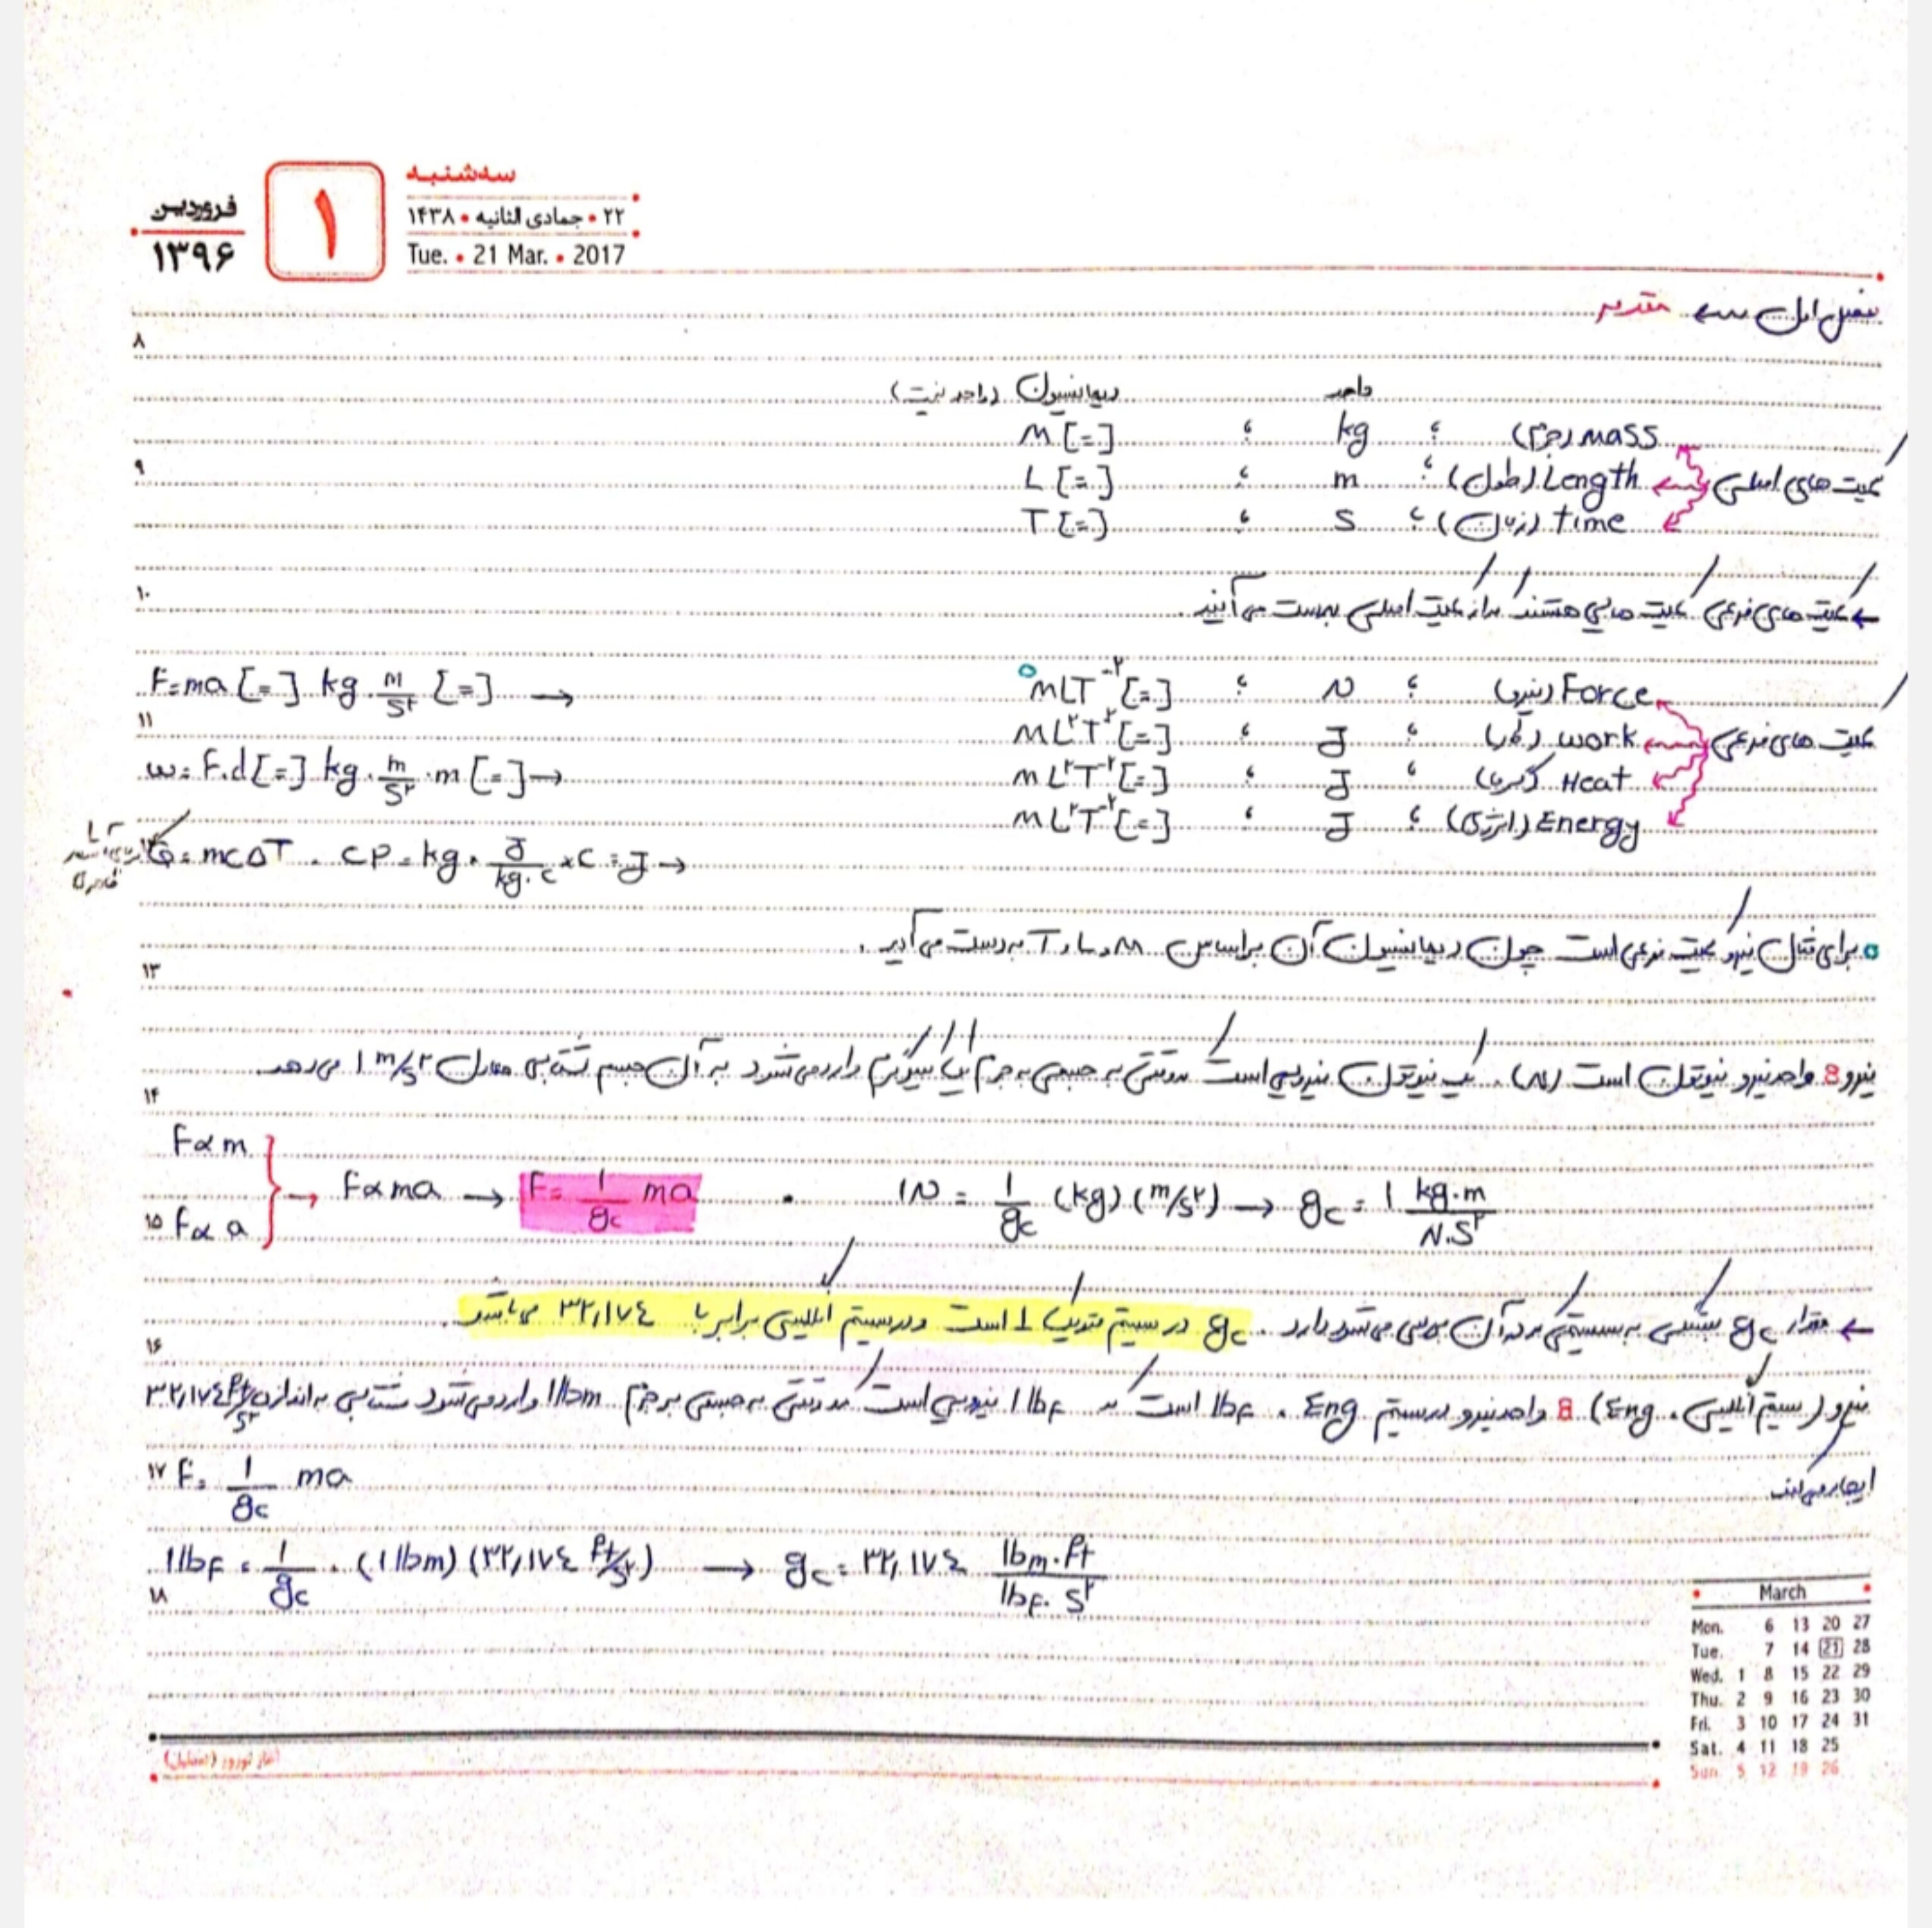 سه‌شنبه
۲۲ • جمادی الثانیه • ۱۴۳۸
Tue. • 21 Mar. • 2017
۱
فروردین
۱۳۹۶
فصل اول ← مقدمه
۸
واحد دیمانسیون (واحد نیست)
کمیت های اصلی
mass (جرم) ؛ kg ؛ M [=]
Length (طول) ؛ m ؛ L [=]
time (زمان) ؛ s ؛ T [=]
۹
۱۰
← کمیت های فرعی کمیت هایی هستند که از کمیت اصلی بدست می آیند.
کمیت های فرعی
Force (نیرو) ؛ N ؛ MLT⁻² [=]
F=ma [=] kg . m/s² [=] →
۱۱
work (کار) ؛ J ؛ ML²T⁻² [=]
w = F.d [=] kg . m/s² . m [=] →
Heat (گرما) ؛ J ؛ ML²T⁻² [=]
Energy (انرژی) ؛ J ؛ ML²T⁻² [=]
Q = mcΔT . CP = kg . J/kg.c × c = J →
برای مثال نیرو کمیت فرعی است چون دیمانسیون آن براساس M و L و T به دست می آید.
۱۳
نیرو 8 واحد نیرو نیوتن است (N). یک نیوتن نیرویی است که وقتی به جسمی به جرم یک کیلوگرم وارد می شود به آن جسم شتابی معادل ۱ m/s² می دهد.
۱۴
F∝m
F∝a
۱۵
F∝ma → F= 1/gc ma . 1N = 1/gc (kg) (m/s²) → gc = 1 kg.m/N.s²
← مقدار gc بستگی به سیستمی که در آن بررسی می شود دارد. gc در سیستم متریک 1 است و در سیستم انگلیسی برابر با ۳۲,۱۷۴ می باشد.
۱۶
نیرو (سیستم انگلیسی . Eng) 8 واحد نیرو در سیستم Eng . lbF است که 1 lbF نیرویی است که وقتی به جسمی به جرم 1 lbm وارد می شود شتابی به اندازه ۳۲,۱۷۴ ft/s²
ایجاد می کند
۱۷
F = 1/gc ma
1 lbF = 1/gc . (1 lbm) (۳۲,۱۷۴ ft/s²) → gc = ۳۲,۱۷۴ lbm.ft/lbF.s²
۱۸
March
Mon. 6 13 20 27
Tue. 7 14 21 28
Wed. 1 8 15 22 29
Thu. 2 9 16 23 30
Fri. 3 10 17 24 31
Sat. 4 11 18 25
Sun. 5 12 19 26
آغاز نوروز (تعطیل)